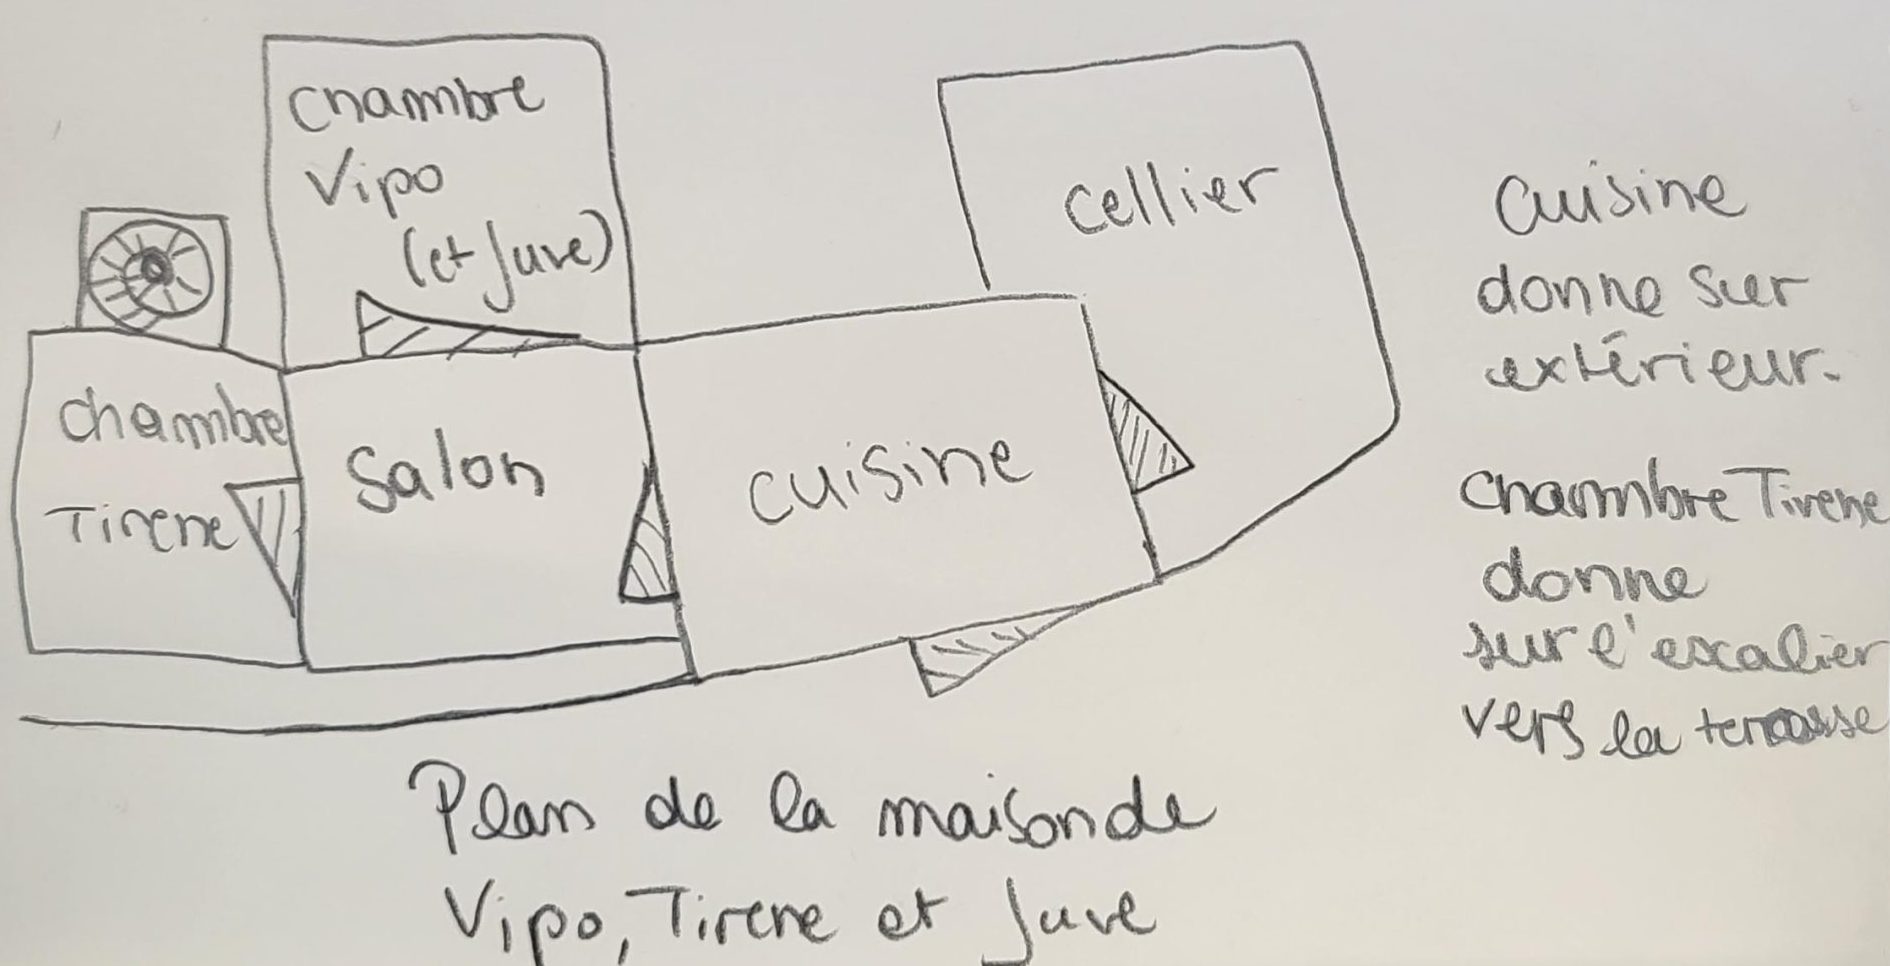 chambre
Vipo
(et Juve)
cellier
chambre
Tirene
Salon
cuisine
Cuisine
donne sur
extérieur.
chambre Tirene
donne
sur l'escalier
vers la terrasse
Plan de la maison de
Vipo, Tirene et Juve